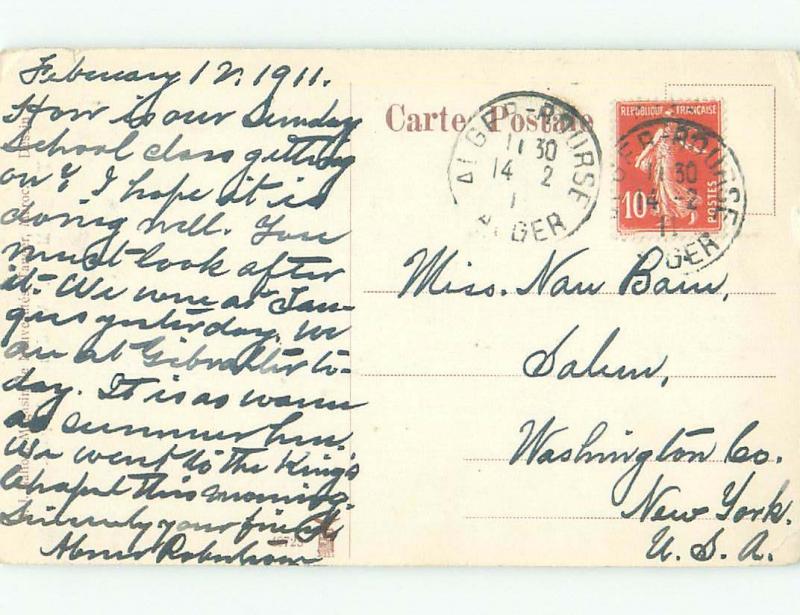 February 12. 1911.
How is our Sunday
School class getting
on? I hope it is
doing well. You
must look after
it. We were at Tan-
giers yesterday. we
are at Gibralter to-
day. It is as warm
as summer here.
We went to the King's
Chapel this morning.
Sincerely your friend
Robertson
Carte Postale
ALGER-BOURSE
11 30
14 2
11
ALGER
REPUBLIQUE FRANÇAISE
10c
POSTES
ALGER-BOURSE
11 30
14 - 2
11
ALGER
Miss. Nan Bain,
Salem,
Washington Co.
New York.
U. S. A.